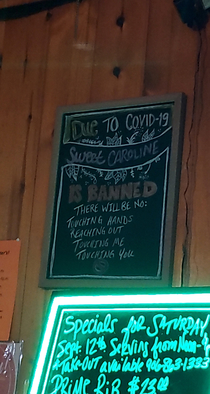 DUE TO COVID-19
SWEET CAROLINE
IS BANNED
THERE WILL BE NO:
TOUCHING HANDS
REACHING OUT
TOUCHING ME
TOUCHING YOU
Specials for Saturday
Sept. 12th Serving from Noon-
Take out available
PRIME RIB $23.00